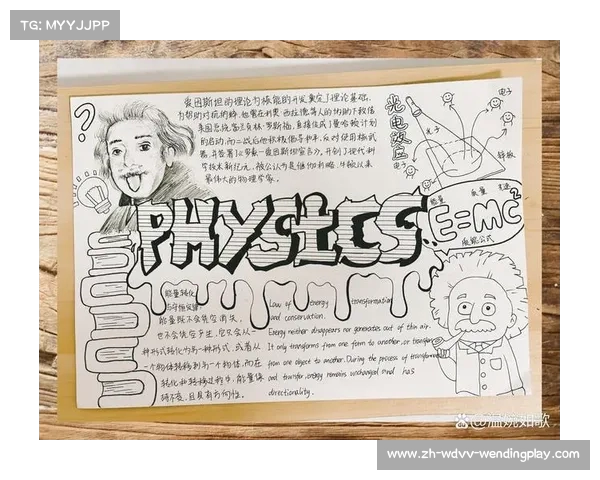 TG: MYYJJPP
爱因斯坦的理论为核能的开发奠定了理论基础,
为帮助对抗纳粹,他曾在利奥·西拉德等人的协助下致信
美国总统富兰克林·罗斯福,直接促成了曼哈顿计划
的启动,而二战后他积极倡导和平、反对使用核武
器,并签署了《罗素—爱因斯坦宣言》。开创了现代科
学技术新纪元,被公认为是继伽利略、牛顿以来
最伟大的物理学家。
?
光电效应
电子
光子
电子
锌板
PHYSICS
能量
质量
光速
E=MC²
质能公式
能量转化
与守恒定律
能量既不会凭空消失,
也不会凭空产生,它只会从一
种形式转化为另一种形式,或者从
一个物体转移到另一个物体,而在
转化和转移过程中,能量保
持不变,且具有方向性。
Law of energy transformation
and conservation.
Energy neither disappears nor generates out of thin air.
It only transforms from one form to another, or transfers
from one object to another. During the process of transformation
and transfer, energy remains unchanged and has
directionality.
温婉如歌
www.zh-wdvv-wendingplay.com